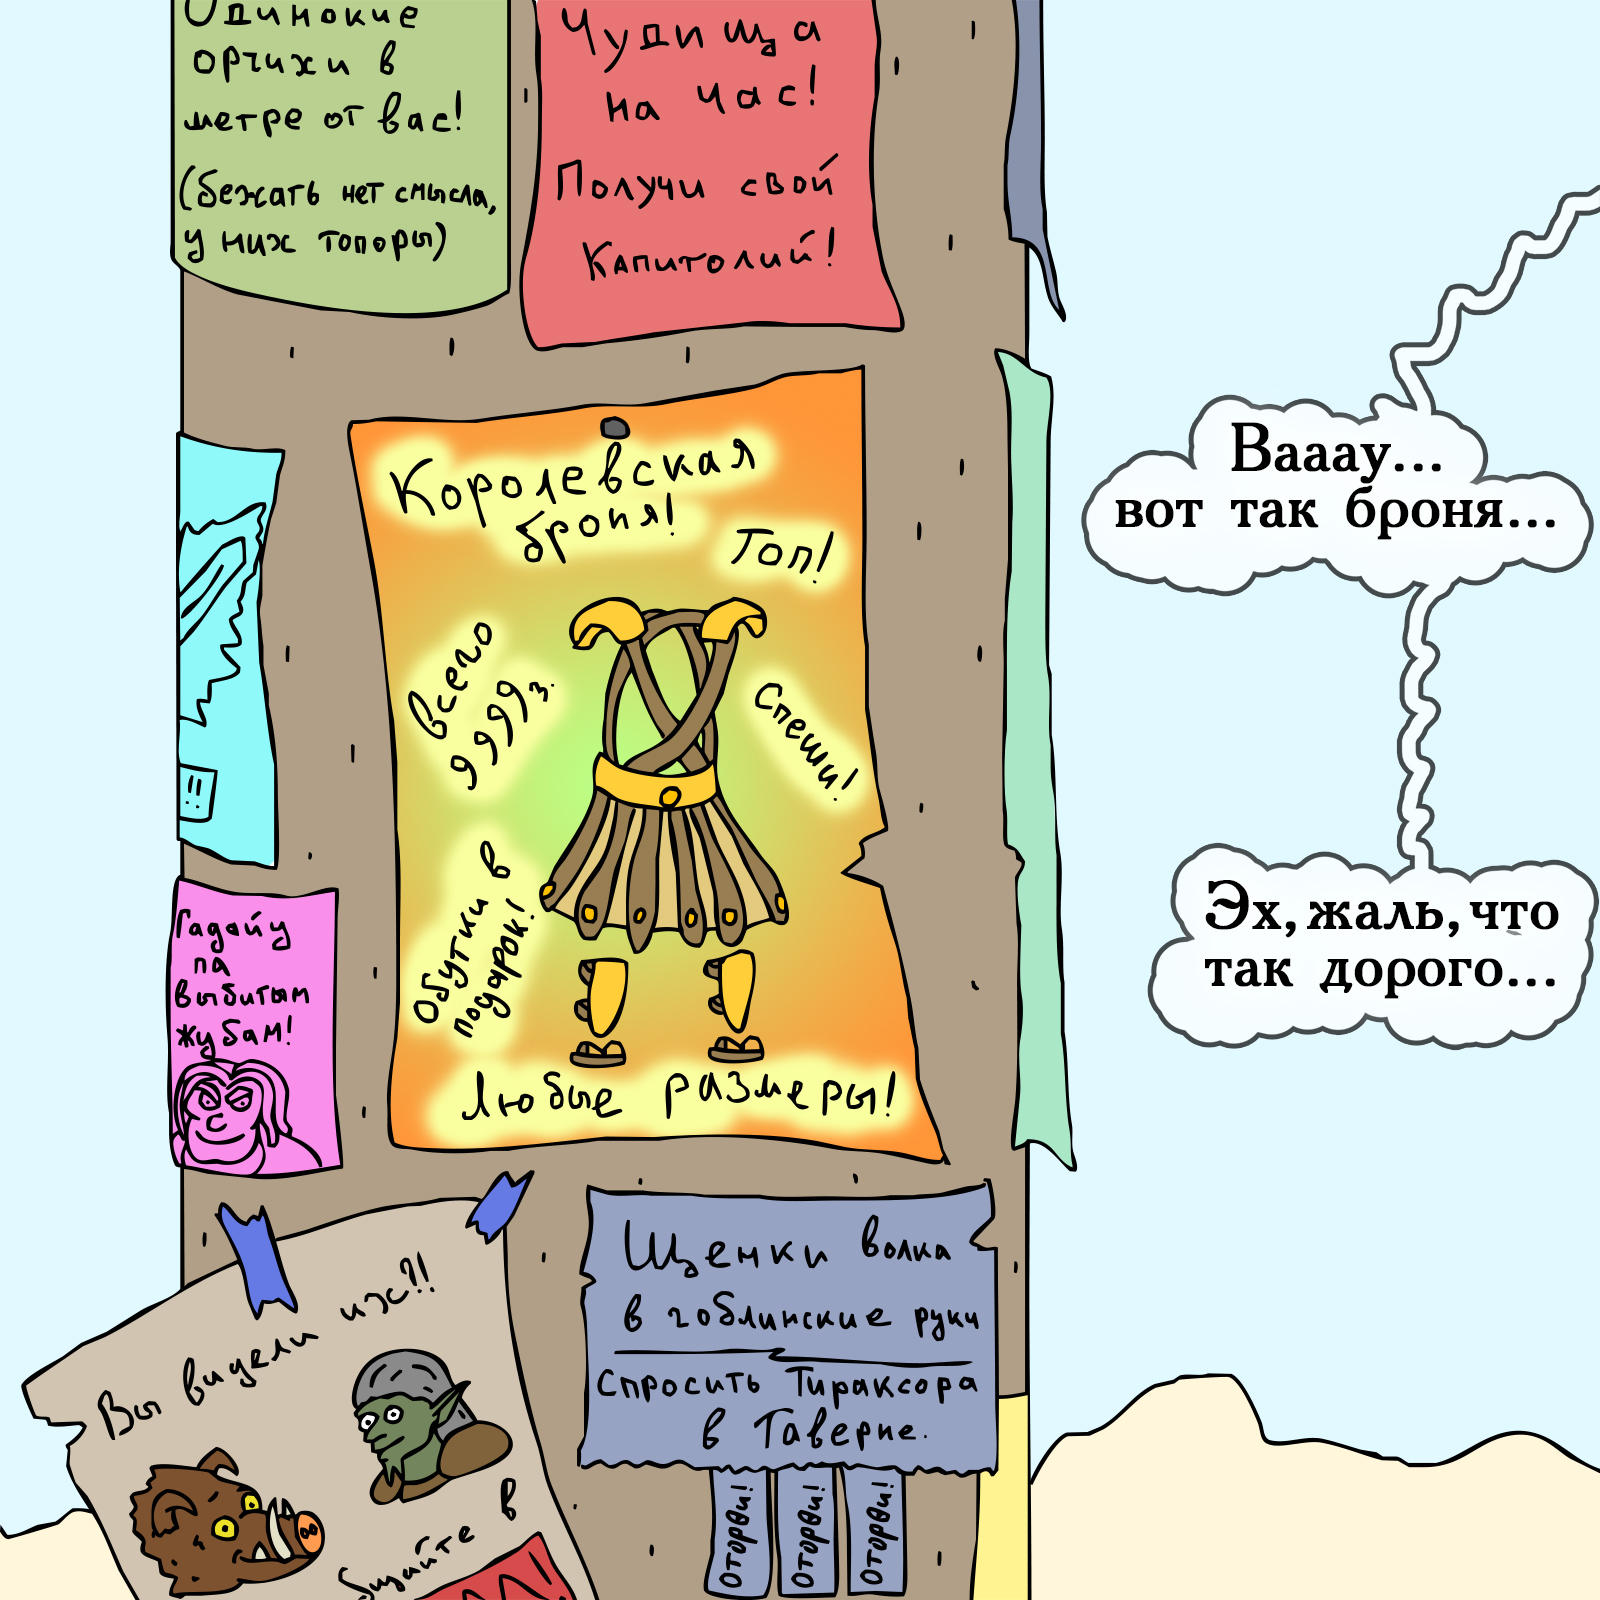 Одинокие
орчихи в
метре от вас!
(бежать нет смысла,
у них топоры)
Чудища
на час!
Получи свой
Капитолий!
Королевская
броня!
Топ!
Всего
9999 з.
Спеши!
Обутки в
подарок!
Любые размеры!
Вааау...
вот так броня...
Эх, жаль, что
так дорого...
!!
Гадайу
па
выбитым
жубам!
Вы видели их?!
в
Щенки волка
в гоблинские руки
Спросить Тираксора
в Таверне.
Оторви!
Оторви!
Оторви!